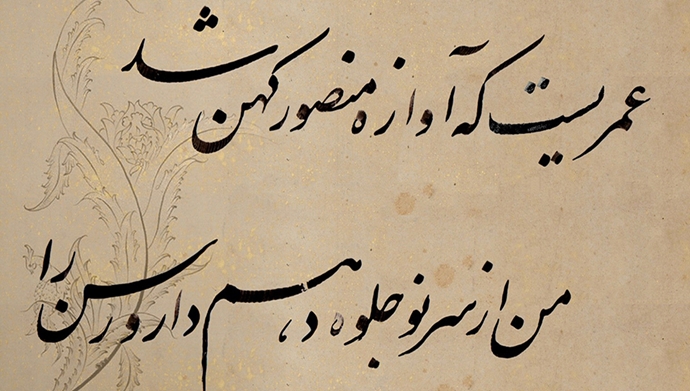 عمریست که آوازه منصور کهن شد
من از سر نو جلوه دهم دار و رسن را